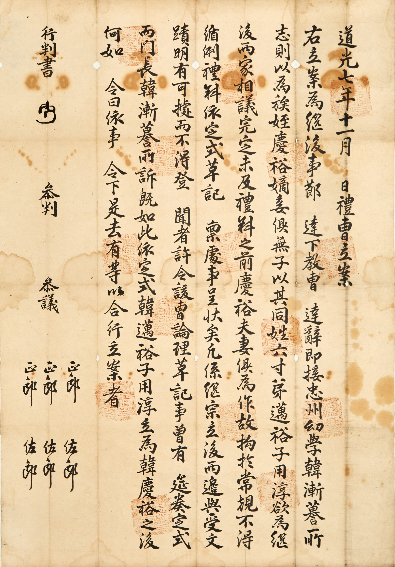 道光七年十一月 日禮曹立案
右立案爲繼後事節 達下教曹 達辭即接忠州幼學韓漸謩所
志則以爲族姪慶裕嫡妾俱無子以其同姓六寸弟邁裕子用淳欲爲繼
後兩家相議完定未及禮斜之前慶裕夫妻俱爲作故拘於常規不得
循例禮斜依定式草記 稟處事呈狀矣凡係繼宗立後兩邊與受文
蹟明有可據而不得登 聞者許令該曹論理草記事曾有 筵奏定式
兩門長韓漸謩所訴旣如此依定式韓邁裕子用淳立爲韓慶裕之後
何如 令曰依事 令下是去有等以合行立案者
行判書 參判 參議 正郎 正郎 正郎
佐郎 佐郎 佐郎